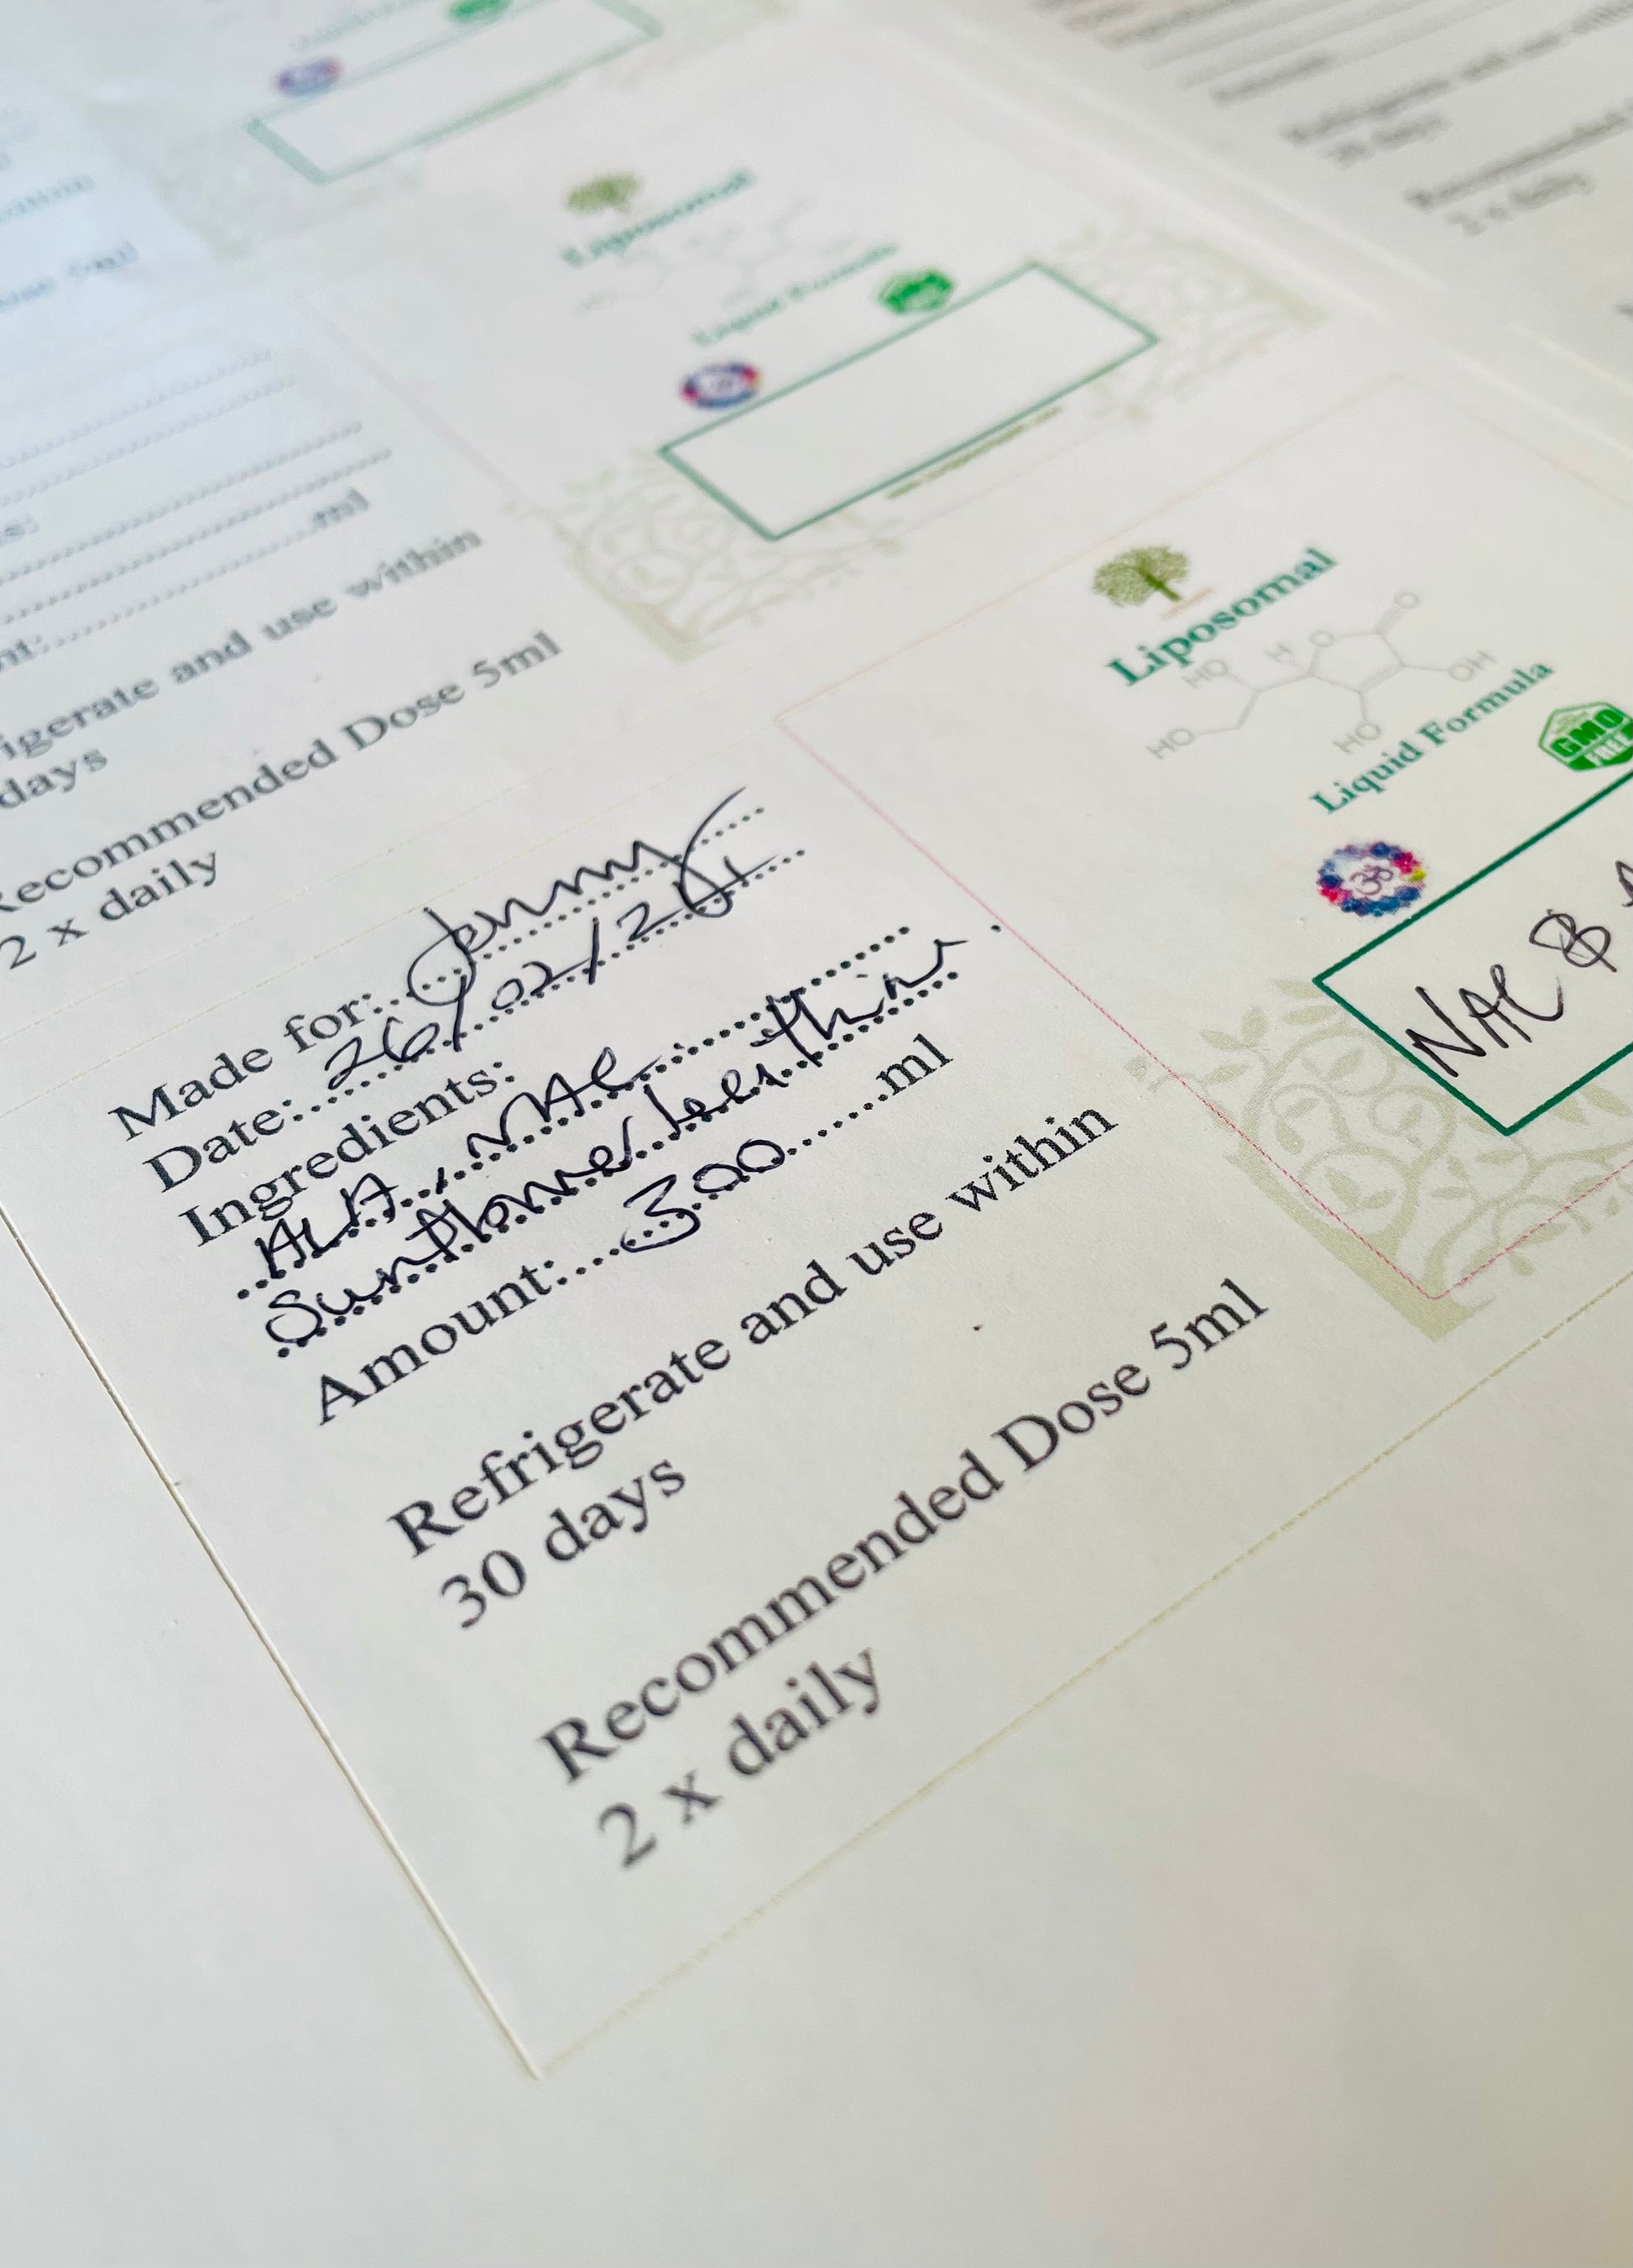 Liposomal
Liquid Formula
Refrigerate and use within
30 days
2 x daily
ose 5ml
ml
igerate and use within
days
Recommended Dose 5ml
2 x daily
Made for: Jenny
Date: 26/02/24
Ingredients:
ALA, NAC
Sunflower lecithin.
Amount: 300 ml
Refrigerate and use within
30 days
Recommended Dose 5ml
2 x daily
Liposomal
HO
H
O
O
OH
HO
HO
Liquid Formula
GMO
FREE
ॐ
NAC &